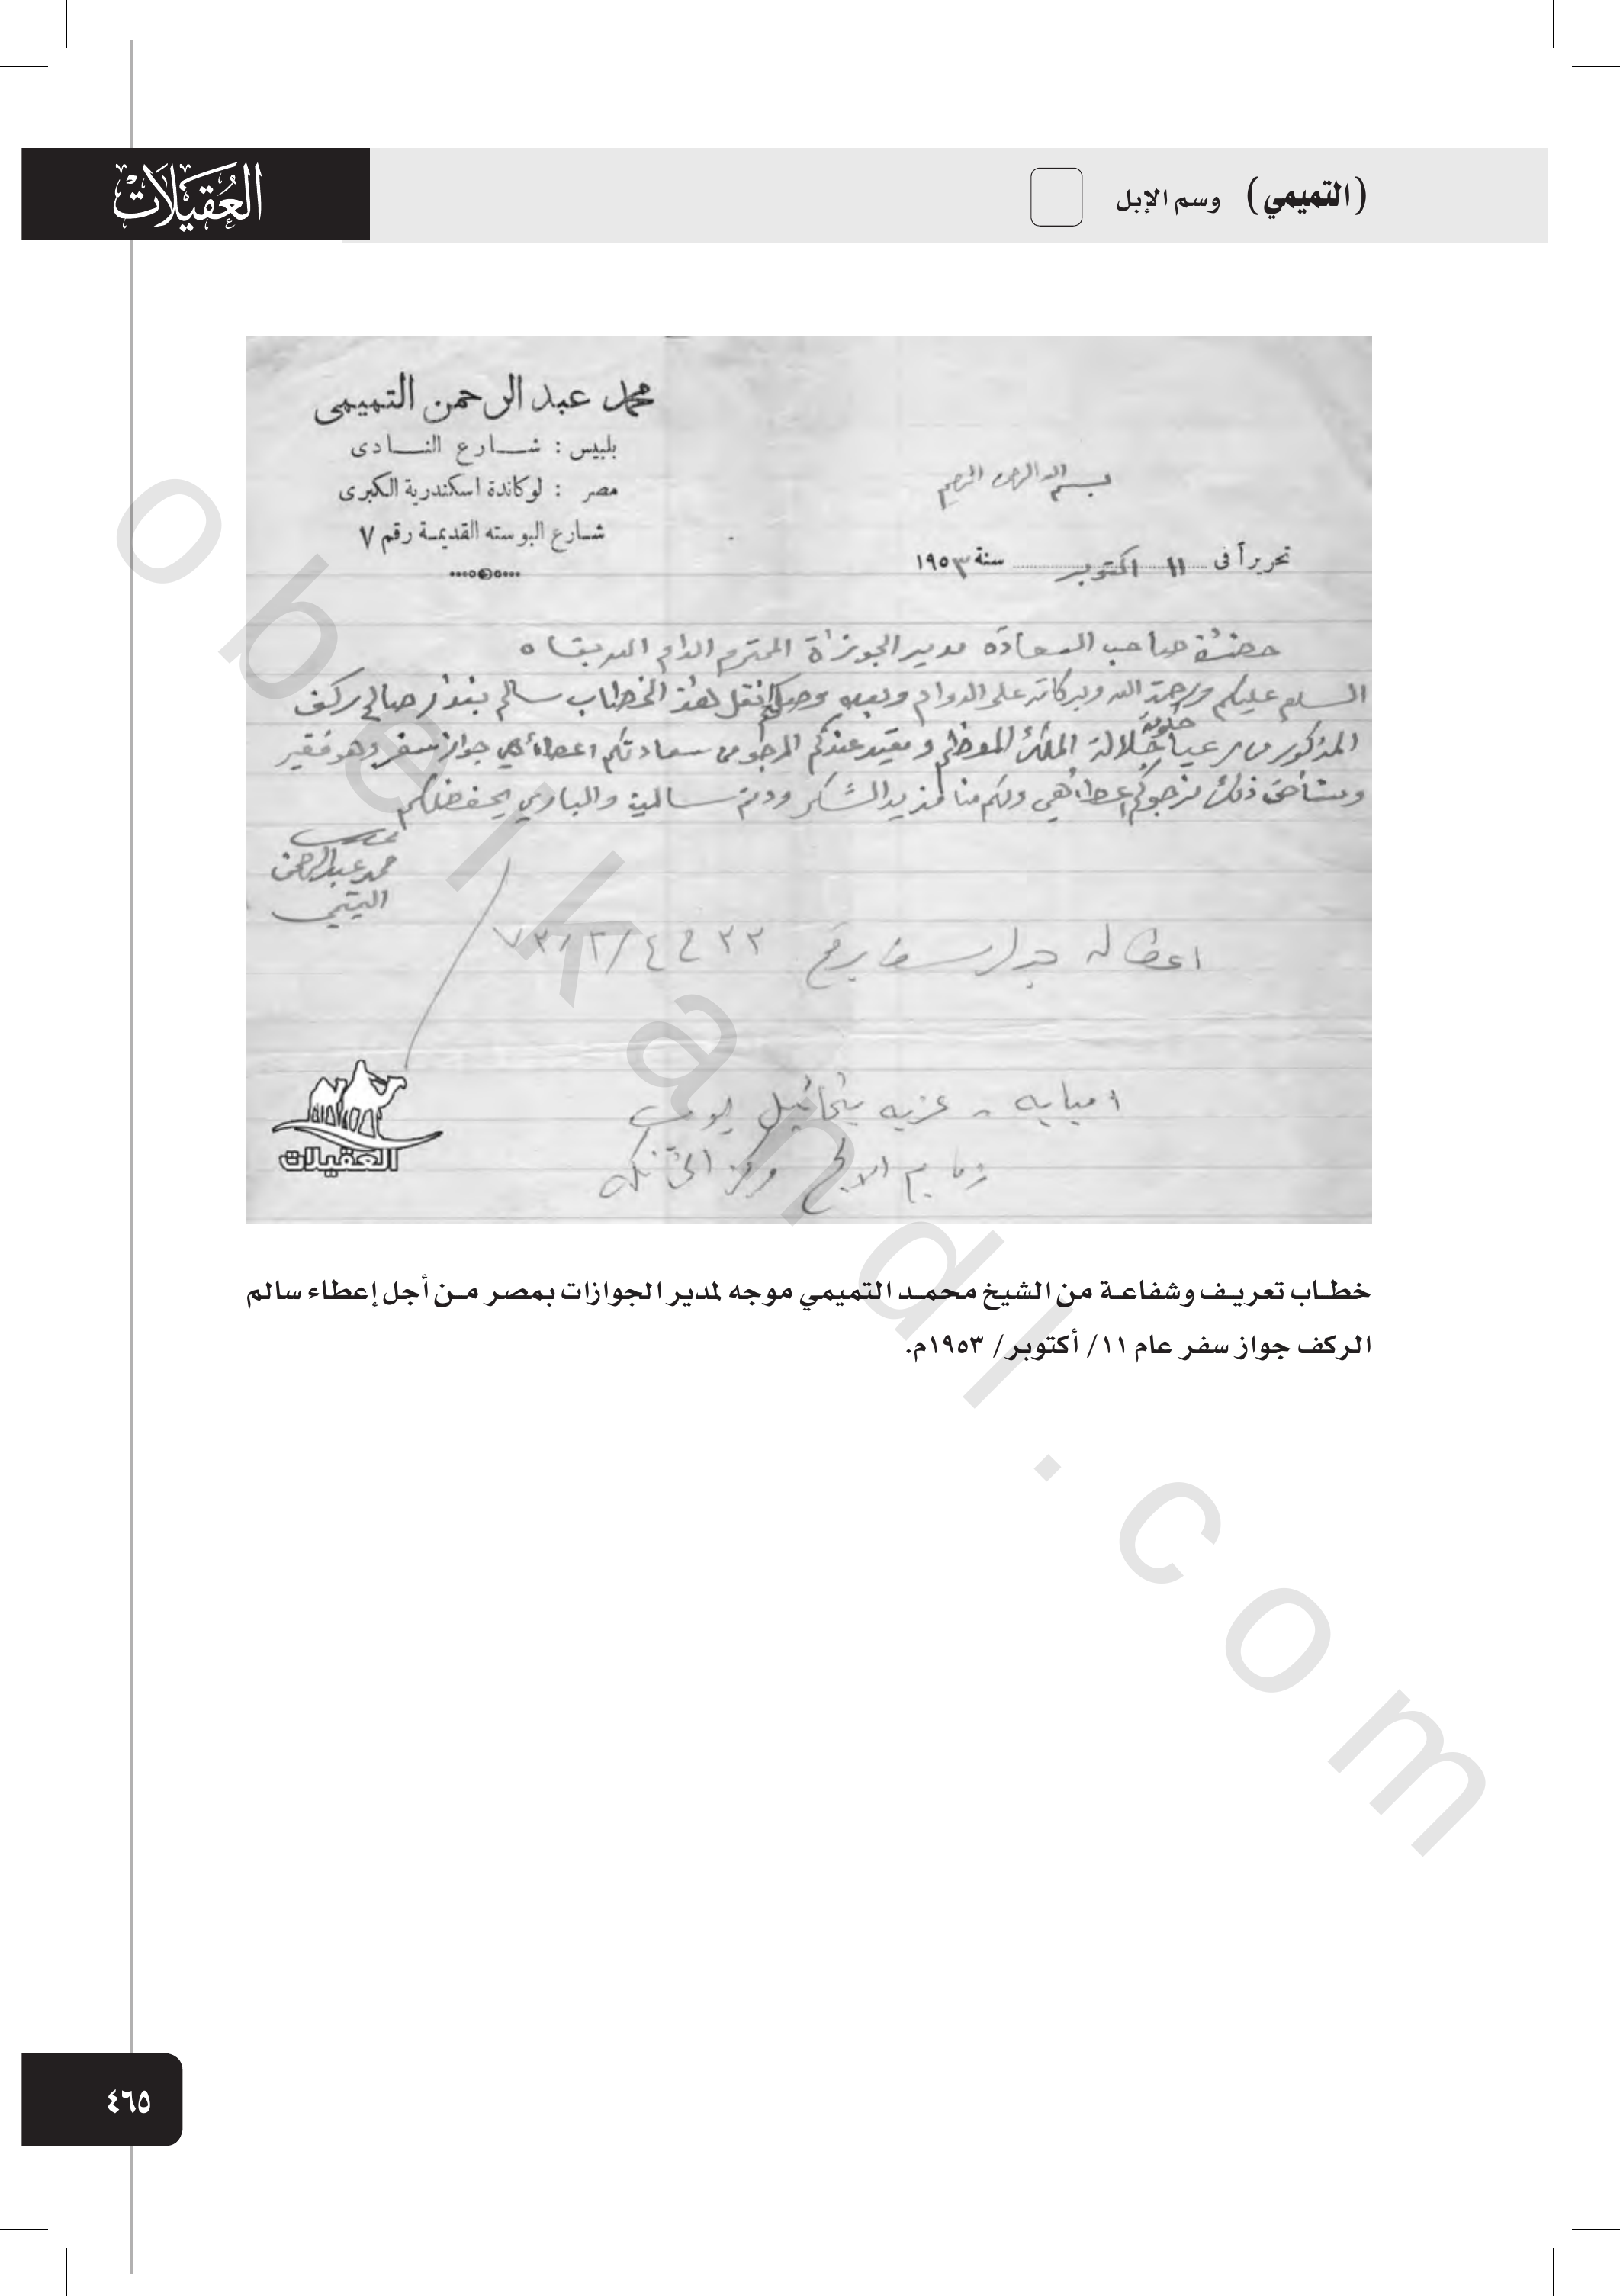 (التميمي) وسم الإبل
العقيلات
محمد عبد الرحمن التميمى
بلبيس : شارع النادى
مصر : لوكاندة اسكندرية الكبرى
شارع البوسته القديمة رقم ٧
بسم الله الرحمن الرحيم
تحريراً فى ١١ اكتوبر سنة ١٩٥٣
حضرة صاحب السعادة مدير الجوزاة المحترم الدام الله بقاه
السلام عليكم ورحمة الله وبركاته على الدوام وبعده وصلكم نقل هذا الخطاب سالم بندر صالح ركف
المذكور من رعيا جلالة الملك المعظم ومقيد عندكم المرجو من سعادتكم اعطائهي جواز سفر وهو فقير
ذلك نرجوكم اعطائهي ولكم منا مزيد الشكر ودمتم سالمين والباري يحفضلكم
محمد عبدالرحمن
التميمي
اعطا له جواز سفر برقم
امبابه - عزبه يوسف
مركز الخانكه
العقيلات
خطاب تعريف وشفاعة من الشيخ محمد التميمي موجه لمدير الجوازات بمصر من أجل إعطاء سالم
الركف جواز سفر عام ١١/ أكتوبر/ ١٩٥٣م.
٤٦٥
obeikandl.com